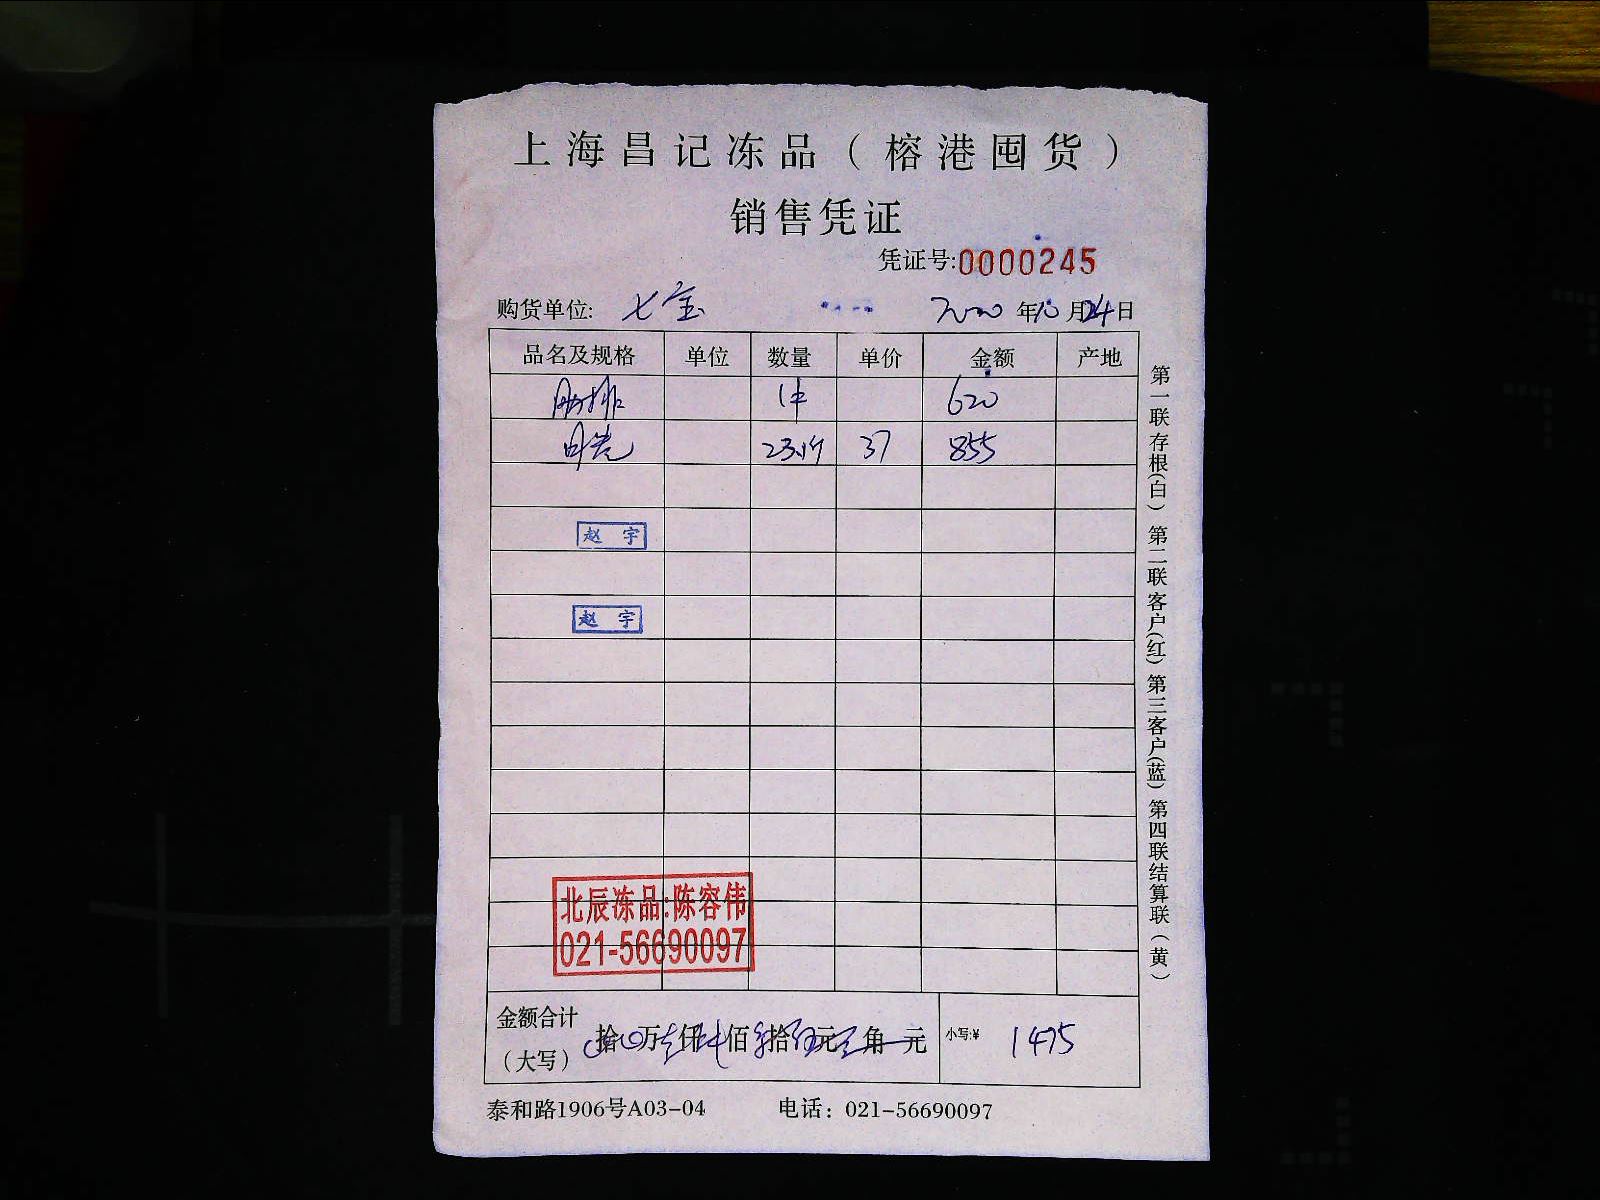 上海昌记冻品（榕港囤货）
销售凭证
凭证号:0000245
购货单位: 七宝 2020年10月24日
品名及规格 单位 数量 单价 金额 产地
肋排 1件 620
23.1斤 37 855
赵 宇
赵 宇
北辰冻品:陈容伟
021-56690097
金额合计
（大写） 拾 万 仟 佰 拾 元 角 元 小写:¥ 1475
泰和路1906号A03-04 电话：021-56690097
第一联存根(白) 第二联客户(红) 第三客户(蓝) 第四联结算联(黄)